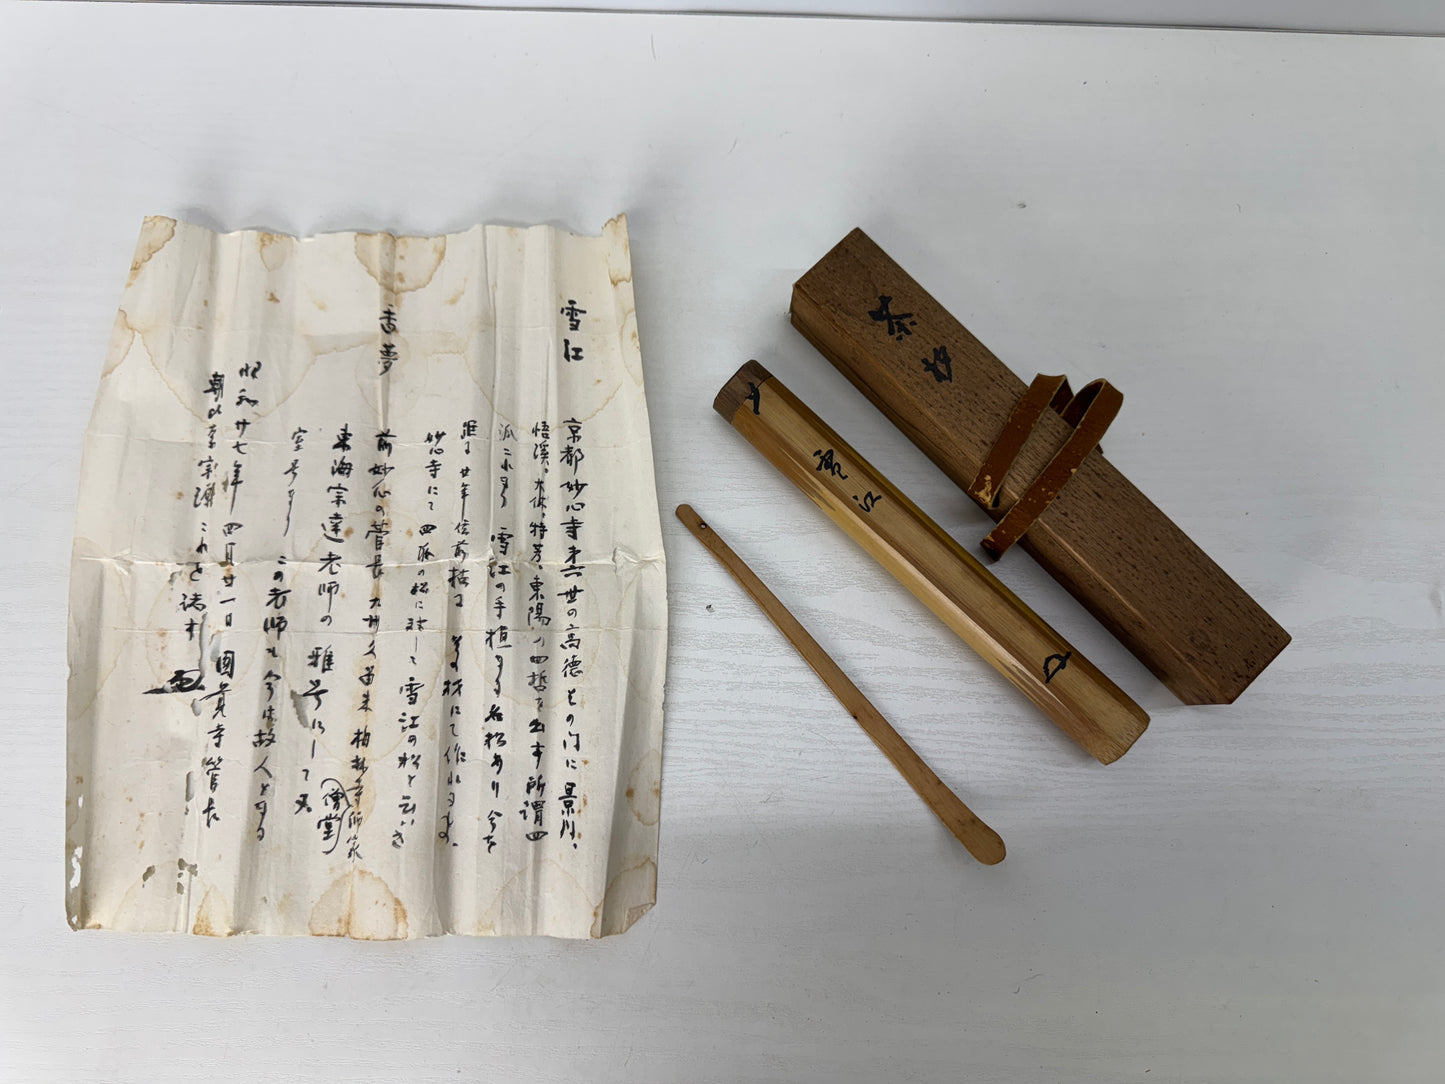 雪江
京都妙心寺第六世の高徳その門に景川、
悟溪、大休、特芳、東陽の四哲を出す所謂四
派これなり 雪江の手植せる名松あり 今を
距る廿年位前枯る その材にて作れるもの、
妙心寺にて四派の松に対して雪江の松と云いき
香夢
前妙心の管長
柏林寺師家
(僧堂)
東海宗達老師の雅号にして又
室号なり この老師も今は故人となる
昭和廿七年四月廿一日 圓覚寺管長
朝比奈宗源これを誌す
茶杓
雪江